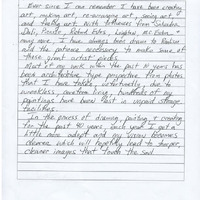 Ever since I can remember I have been creating
art, making art, re-arranging art, seeing art &
feeling art. With influences from Salvador
Dali, Robert Bates,
more sure. I have always been drawn to Realism
and the patience necessary to make some of
these great artist' pieces.
Most of my work within the past 10 years has
been architecture type perspective from photos
that I have taken, unfortunately, due to
weakness, constant living, hundreds of my
paintings have been lost in unpaid storage
facilities.
In the process of drawing, painting & creating
for the past 40 years, each year I get a
little more adept and my vision becomes
cleaner which will hopefully lead to sharper,
cleaner images that touch the soul.